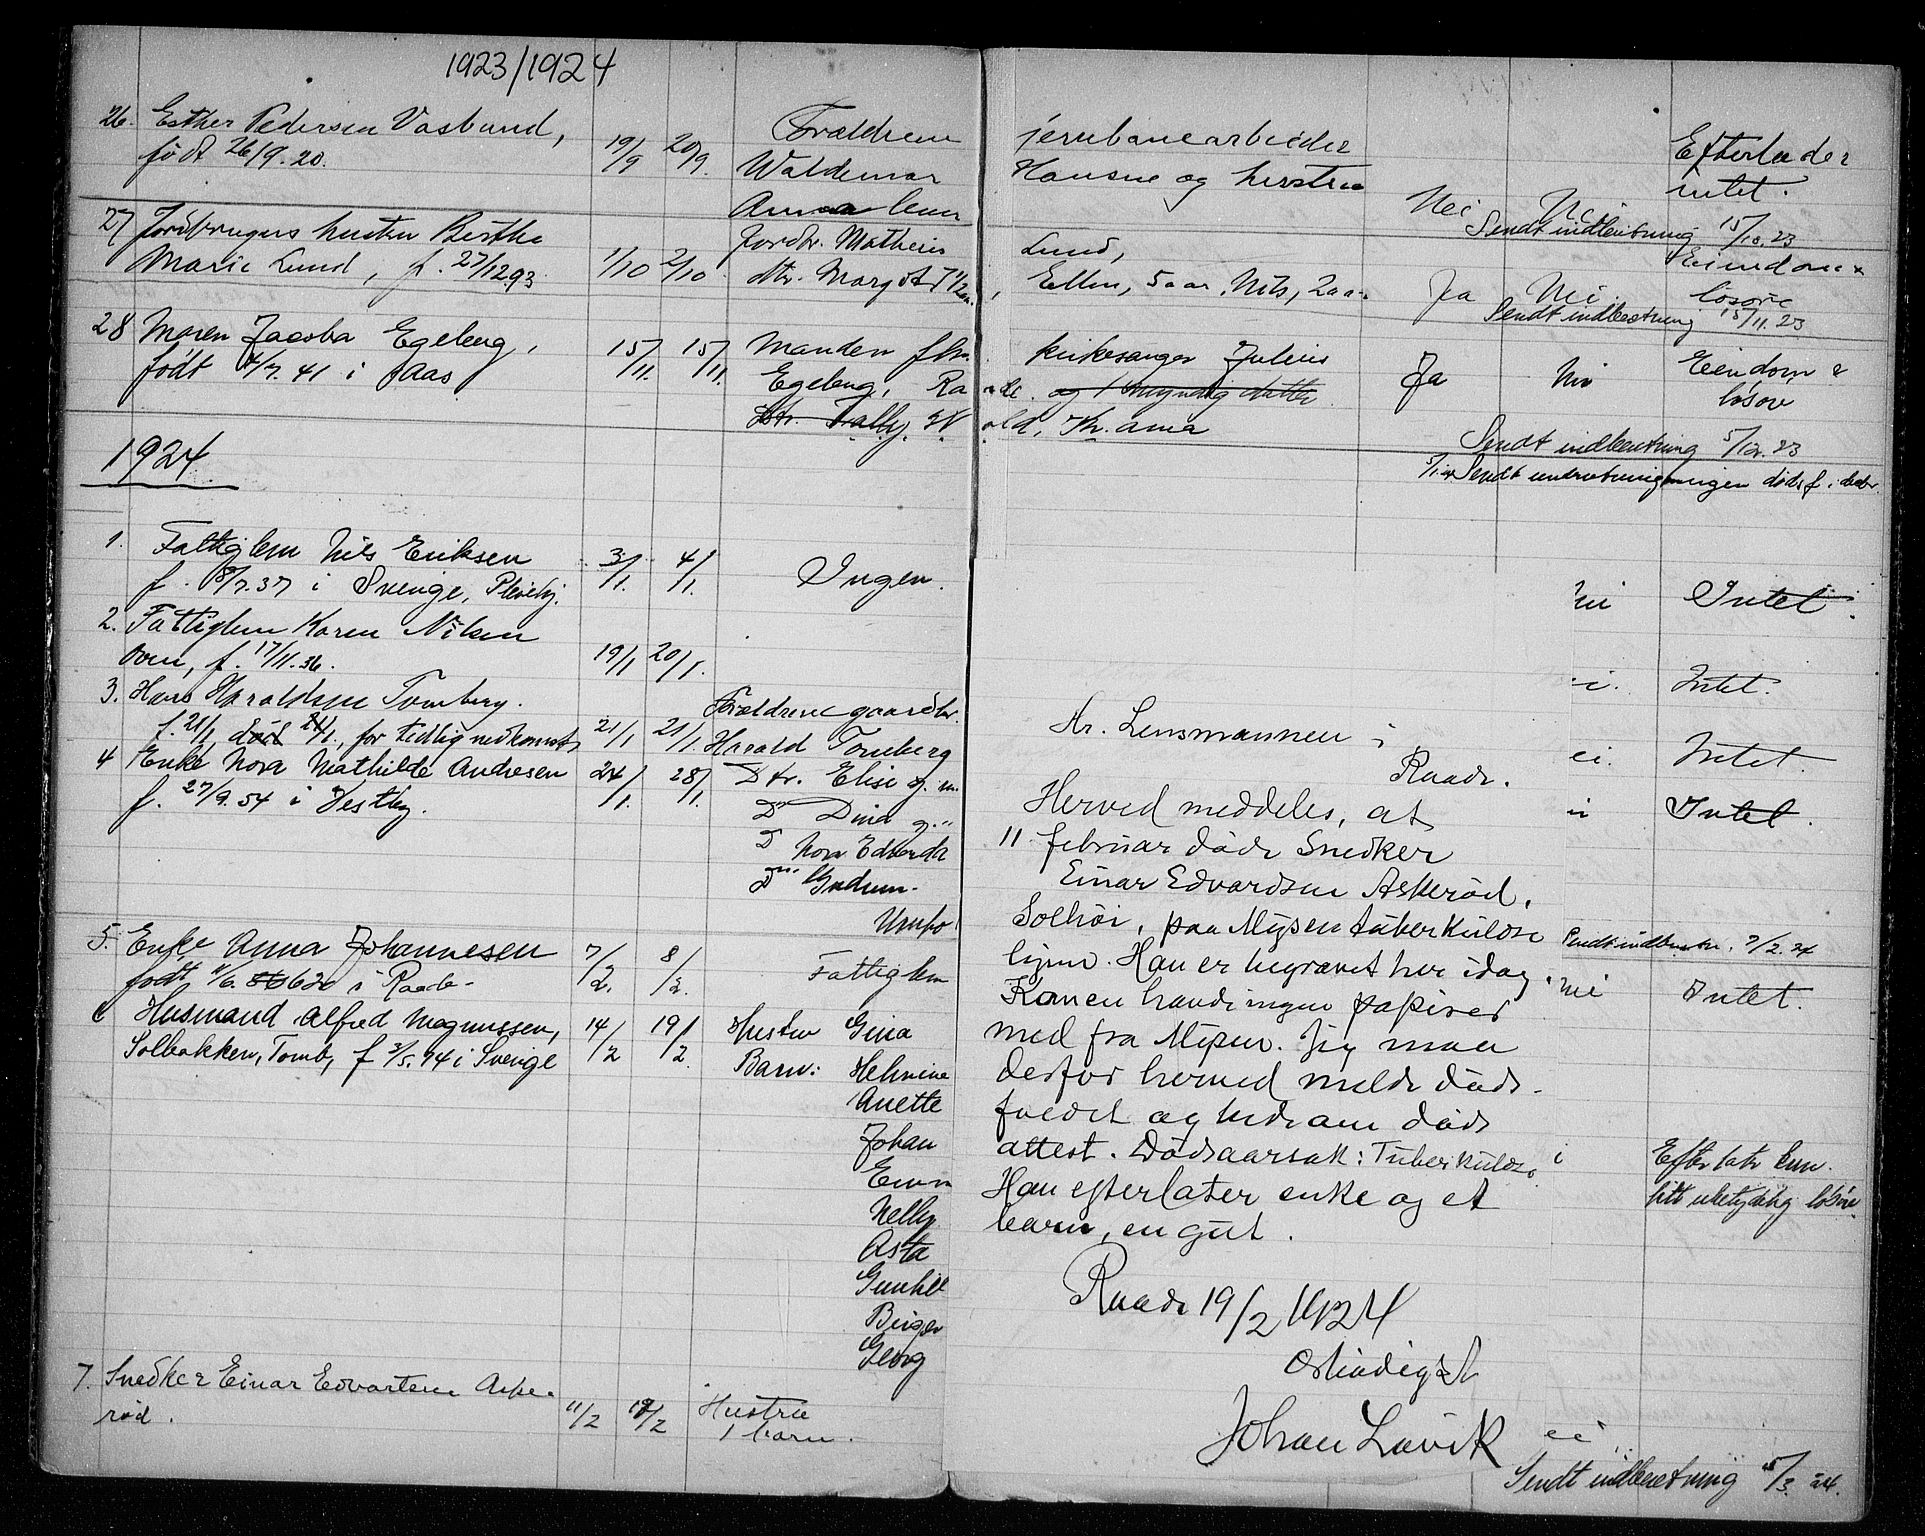 1923/1924
26. Esther Pedersen Vasbund,
født 26/9. 20.
19/9 20/9.
Forældrene
Waldemar
Anna
jernbanearbeider
Hansen og hustru
Nei Nei
Efterlader
intet.
Sendt indberetning 15/10. 23
27 Jordbrugers hustru Berthe
Marie Lund, f. 27/12.93
1/10 2/10
Jordbr. Matheus
dtr. Margot 7 1/2 aar
Lund,
Ellen, 5 aar, Nils, 2 aar
Ja Nei
Eiendom &
løsøre
Sendt indberetning 15/11. 23
28 Maren Jacoba Egeberg,
født 4/7. 41 i Aas
15/11. 15/11.
Manden fhv.
Egeberg, Ra
dtr. Valby, W
kirkesanger Julius
ade. og 1 myndig datter
old, Kr.ania
Ja Nei
Eiendom &
løsøre
Sendt indberetning 5/12. 23
Sendt underretning dødsf. i
1924.
1. Fattiglem Nils Eriksen
f. 8/7. 37 i Sverige, Pleiehj.
3/1. 4/1.
Ingen.
Nei Intet.
2. Fattiglem Karen Nilsen
f. 17/11. 36.
19/1 20/1.
i. Intet.
3. Hans Haraldsen Tomberg.
f. 21/1, død 21/1., for tidlig nedkomst
21/1 21/1.
Forældrene gaardbr.
Harald Tomberg
ei. Intet.
4 Enke Nora Mathilde Andresen
f. 27/9. 54 i Vestby.
24/1. 28/1.
Dtr. Elise g. m.
Do Dina g. "
Do Nora Edvarda
Do Gudrun.
i Intet.
Sendt indberetn. 7/2. 24
5. Enke Anna Johannesen
født 11/6. 86 62 i Raade.
7/2. 8/2.
Fattiglem
nei Intet.
6 Husmand Alfred Magnussen,
Solbakken, Tomb, f 3/5. 74 i Sverige
14/2 19/2
Hustru Gina
Barn: Helmine
Anette
Johan
Einar
Nelly
Asta
Gunhil
Birger
Georg
i Efterlater kun
litt ubetydelig løsøre.
7. Snedker Einar Edvartsen Aske-
rød.
11/2 19/2
Hustru
1 barn.
ei
Sendt indberetning 5/3. 24.
Hr. Lensmannen i
Raade.
Herved meddeles, at
11 februar døde Snedker
Einar Edvardsen Askerød,
Solhøi, paa Mysen tuberkulose
hjem. Han er begravet her idag.
Konen havde ingen papirer
med fra Mysen. Jeg maa
derfor herved melde døds-
faldet og bede om døds
attest. Dødsaarsak: Tuberkulose
Han efterlater enke og et
barn, en gut.
Raade 19/2 1924
Ærbødigst
Johan Lavik